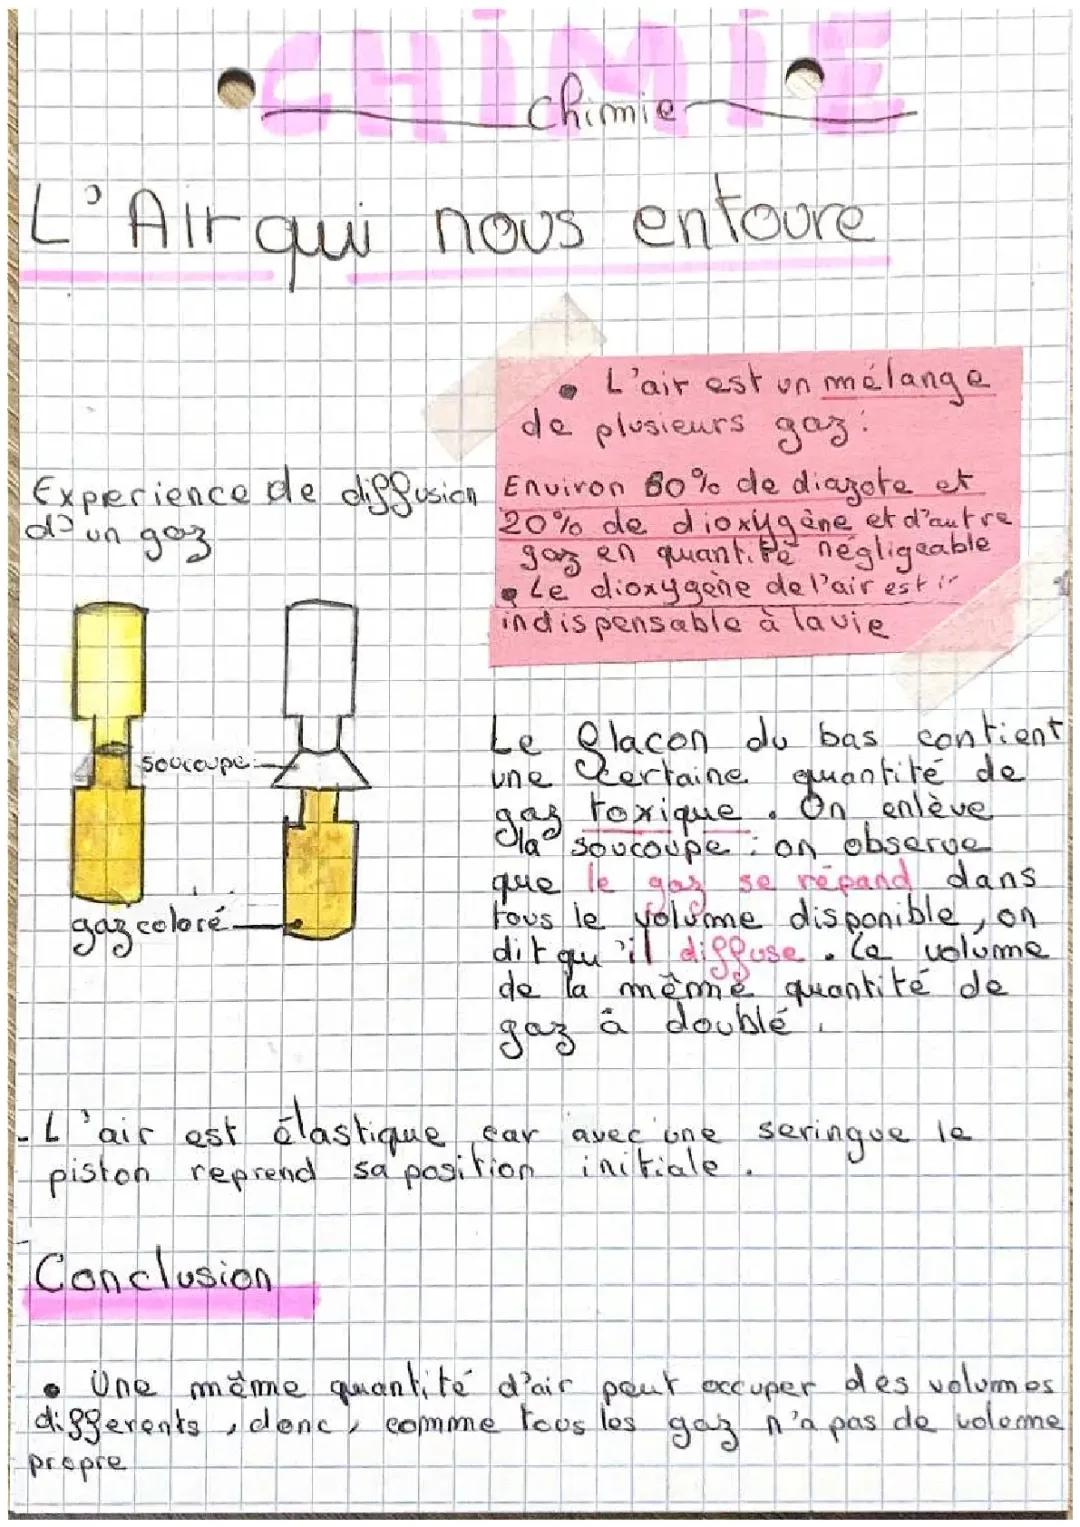 CHIMIE
Chimie
L'Air qui nous entoure
• L'air est un mélange
de plusieurs gaz :
Environ 80% de diazote et
20% de dioxygène et d'autre
gaz en quantité négligeable
• Le dioxygène de l'air est in
indispensable à la vie
Experience de diffusion
d'un gaz
soucoupe
gaz coloré
Le flacon du bas contient
une certaine quantité de
gaz toxique. On enlève
la soucoupe : on observe
que le gaz se répand dans
tous le volume disponible, on
dit qu'il diffuse. Le volume
de la même quantité de
gaz à doublé.
- L'air est élastique car avec une seringue le
piston reprend sa position initiale.
Conclusion
• Une même quantité d'air peut occuper des volumes
differents, donc, comme tous les gaz n'a pas de volume
propre